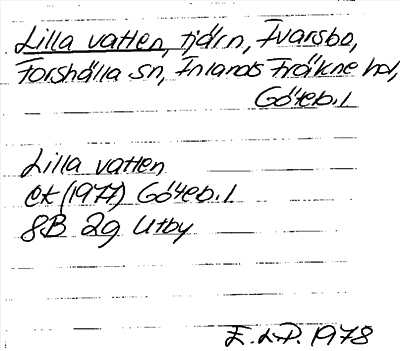 Lilla vatten, tjärn, Ivarsbo,
Forshälla sn, Inlands Fräkne hd,
Göteb. l
Lilla vatten
ek (1977) Göteb. l.
8B 2g Utby
E.LP. 1978